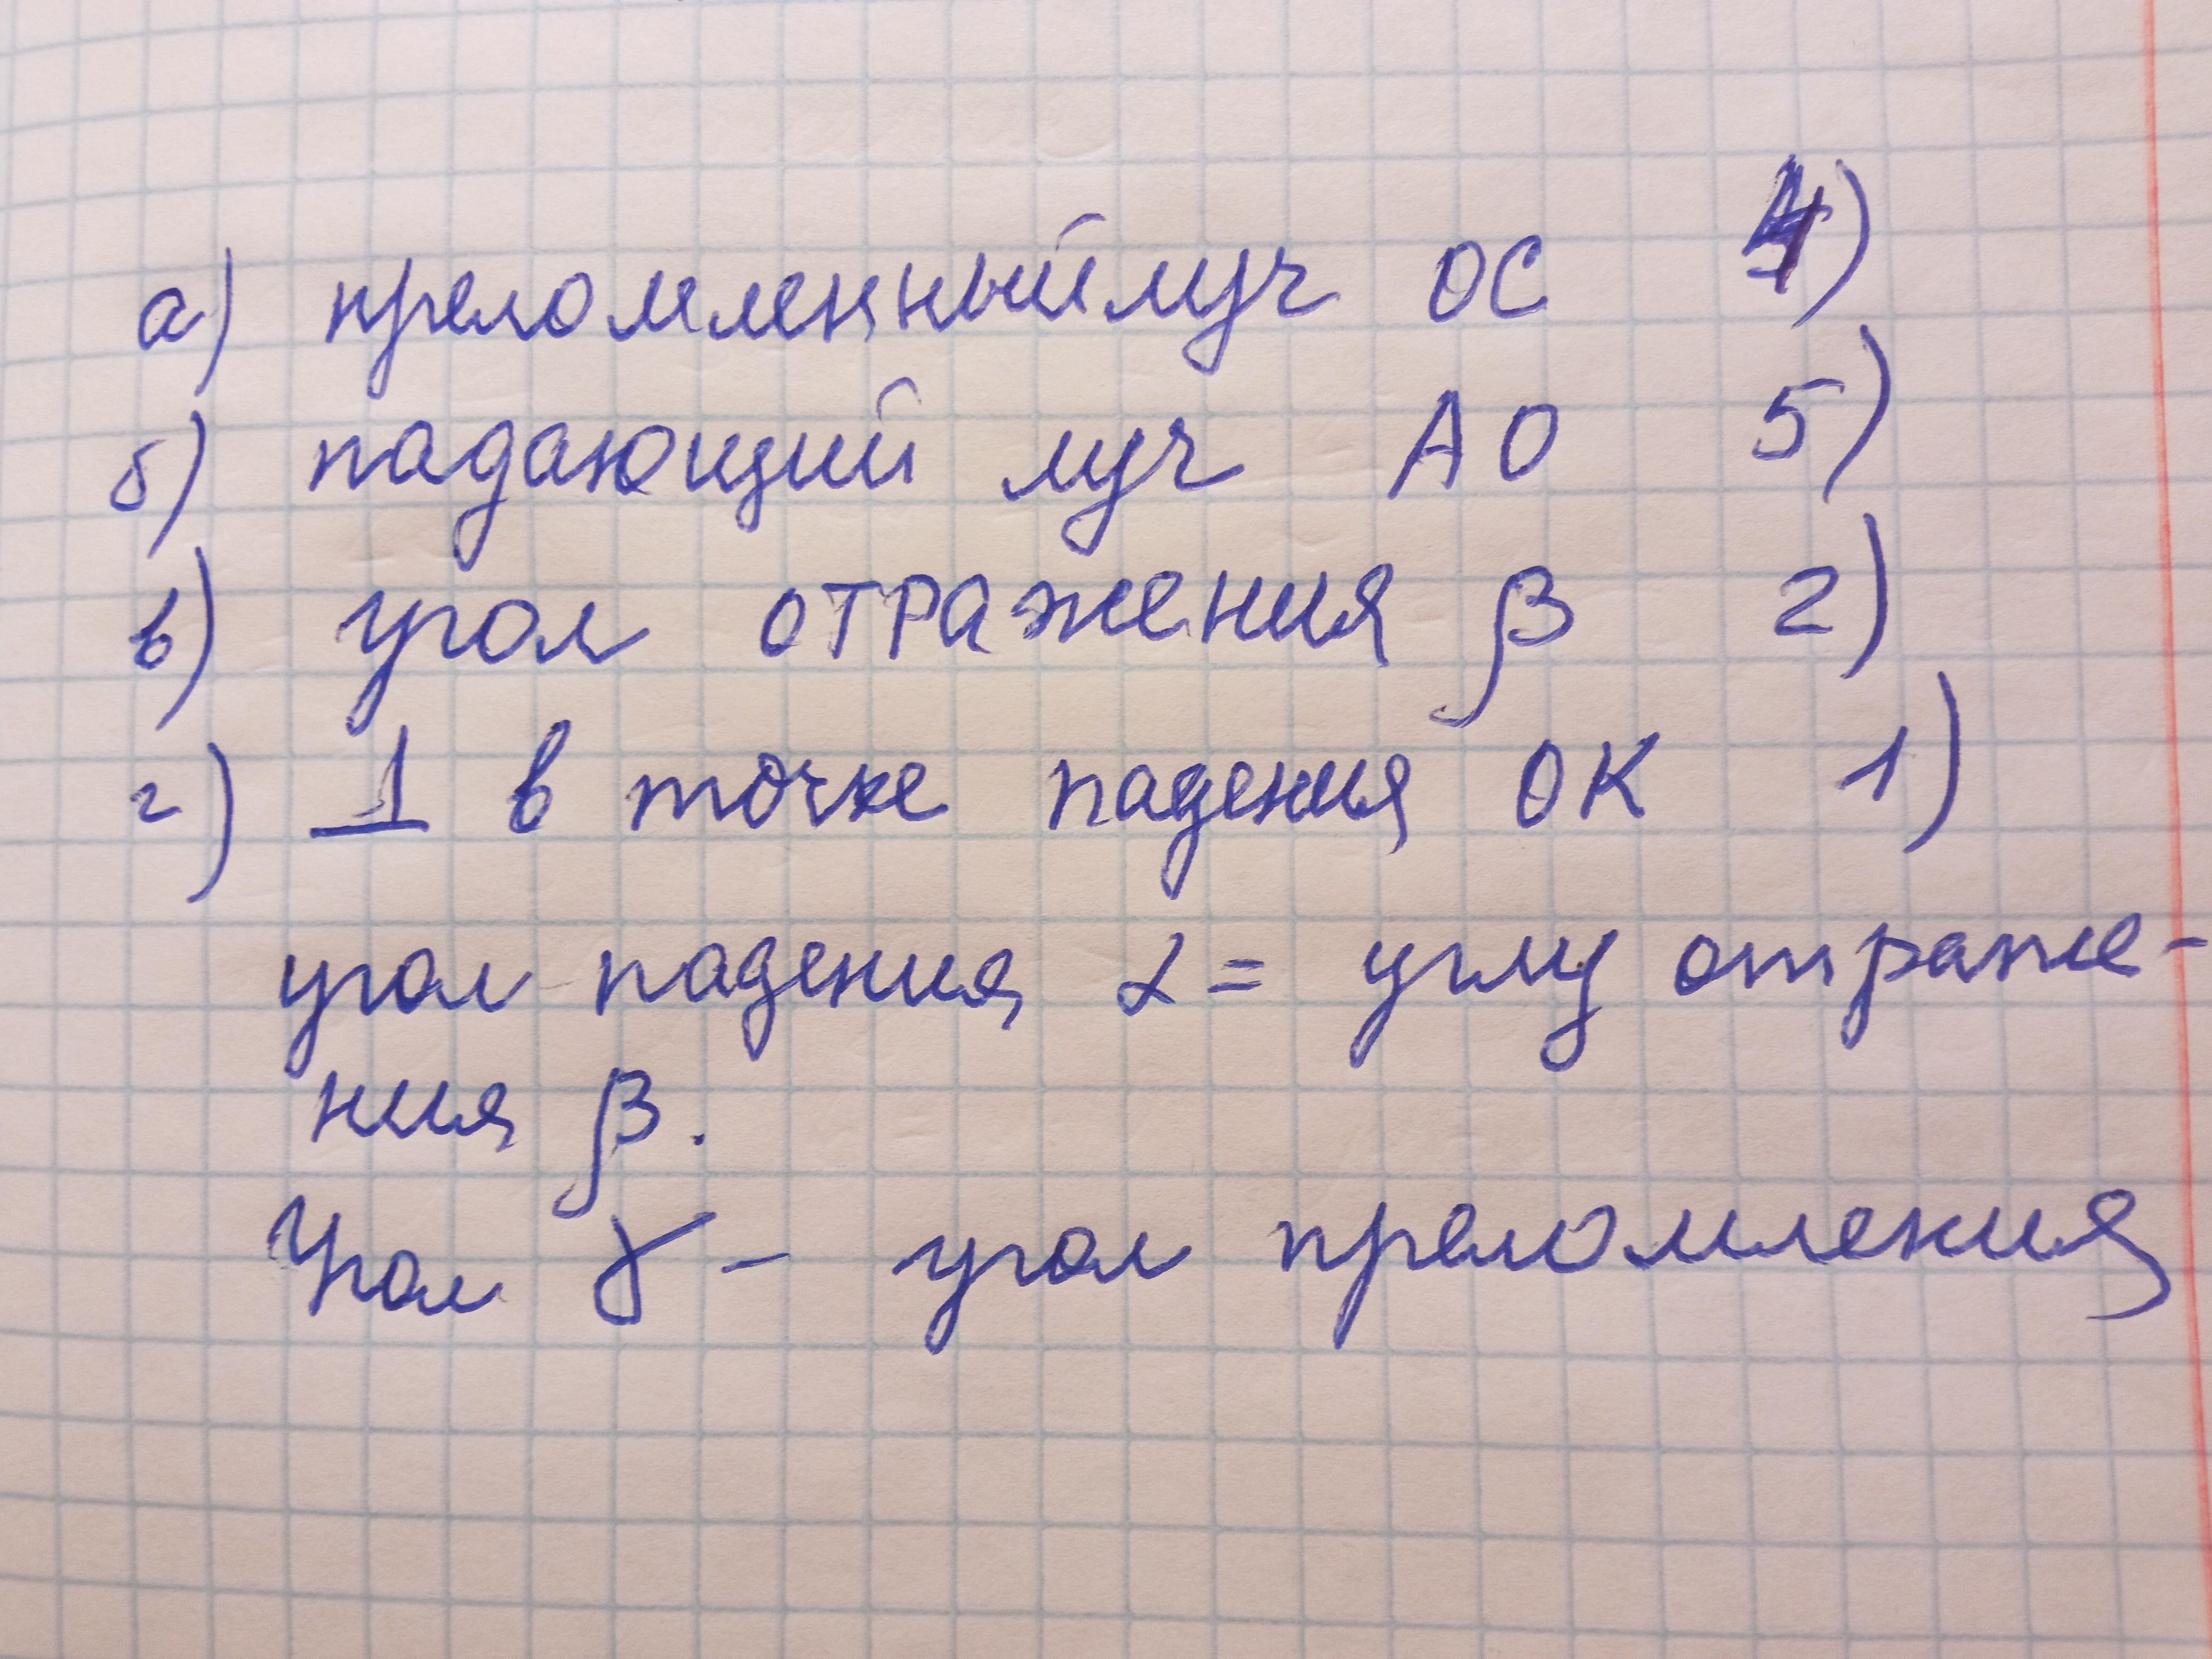 а) преломленный луч ОС 4)
б) падающий луч АО 5)
в) угол отражения β 2)
г) ⊥ в точке падения ОК 1)
угол падения α = углу отраже-
ния β.
Угол γ - угол преломления